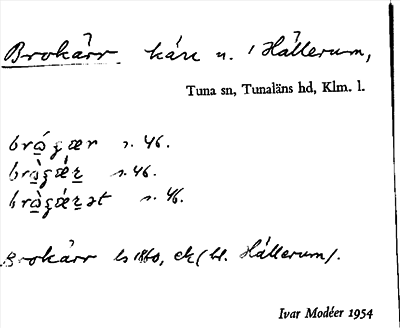 Brokärr. kärr n. ' Hällerum,
Tuna sn, Tunaläns hd, Klm. l.
s. 46.
s. 46.
s. 46.
Brokärr ls 1860, ek (bl. Hällerum).
Ivar Modéer 1954